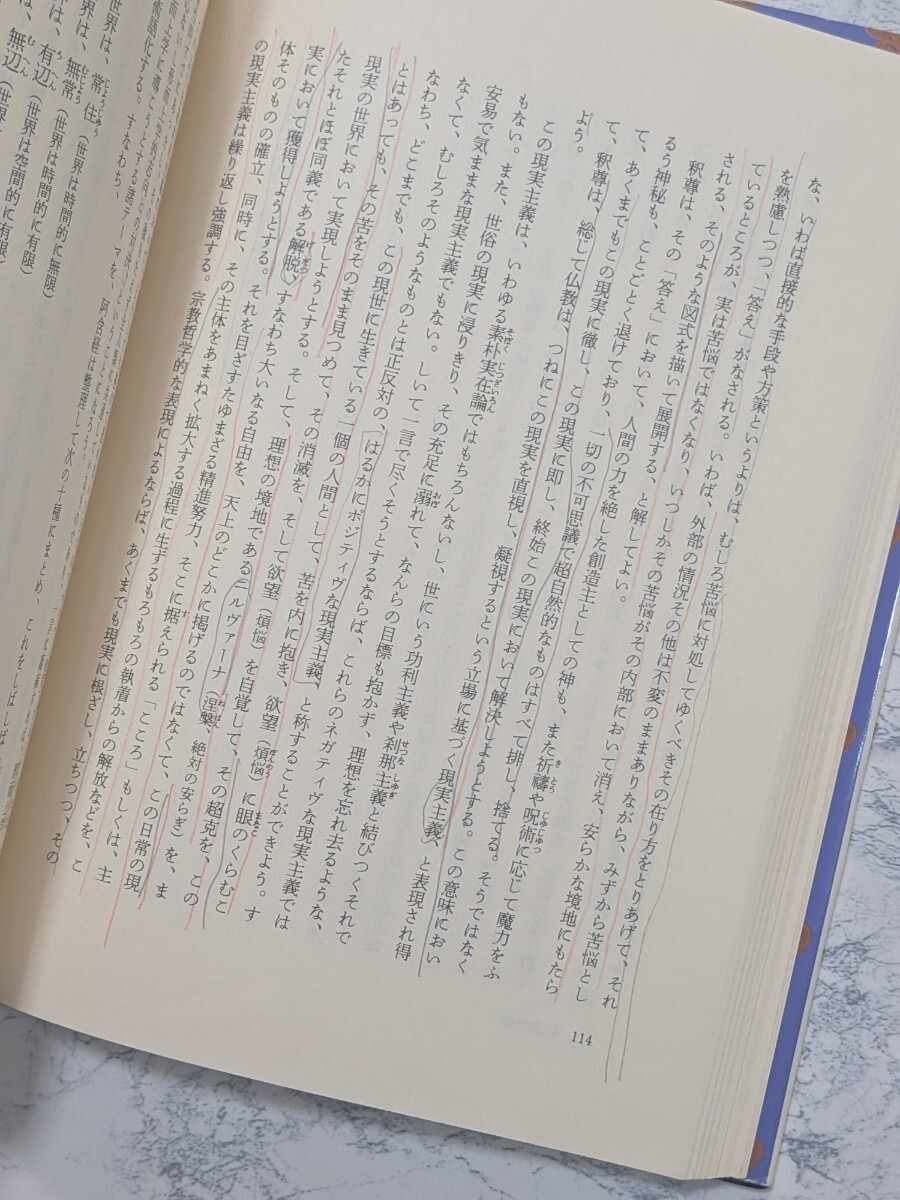 な、いわば直接的な手段や方策というよりは、むしろ苦悩に対処してゆくべきその在り方をとりあげて、それ
を熟慮しつつ、「答え」がなされる。いわば、外部の情況その他は不変のままありながら、みずから苦悩とし
ているところが、実は苦悩ではなくなり、いつしかその苦悩がその内部において消え、安らかな境地にもたら
される、そのような図式を描いて展開する、と解してよい。
釈尊は、その「答え」において、人間の力を絶した創造主としての神も、また祈禱や呪術に応じて魔力をふ
るう神秘も、ことごとく退けており、一切の不可思議で超自然的なものはすべて排し、捨てる。そうではなく
て、あくまでもこの現実に徹し、この現実に即し、終始この現実において解決しようとする。この意味におい
て、釈尊は、総じて仏教は、つねにこの現実を直視し、凝視するという立場に基づく現実主義、と表現され得
よう。
この現実主義は、いわゆる素朴実在論ではもちろんないし、世にいう功利主義や刹那主義と結びつくそれで
もない。また、世俗の現実に浸りきり、その充足に溺れて、なんらの目標も抱かず、理想を忘れ去るような、
安易で気ままな現実主義でもない。しいて一言で尽くそうとするならば、これらのネガティヴな現実主義では
なくて、むしろそのようなものとは正反対の、はるかにポジティヴな現実主義、と称することができよう。す
なわち、どこまでも、この現世に生きている一個の人間として、苦を内に抱き、欲望（煩悩）に眼のくらむこ
とはあっても、その苦をそのまま見つめて、その消滅を、そして欲望（煩悩）を自覚して、その超克を、この
現実の世界において実現しようとする。そして、理想の境地であるニルヴァーナ（涅槃、絶対の安らぎ）を、ま
たそれとほぼ同義である解脱、すなわち大いなる自由を、天上のどこかに掲げるのではなくて、この日常の現
実において獲得しようとする。それを目ざすたゆまざる精進努力、そこに据えられる「こころ」もしくは、主
体そのものの確立、同時に、その主体をあまねく拡大する過程に生ずるもろもろの執着からの解放などを、こ
の現実主義は繰り返し強調する。宗教哲学的な表現によるならば、あくまでも現実に根ざし、立ちつつ、その
114
而上学に導こうとする諸テーマを、阿含経は整理して次の十種にまとめ、これをしばしば
術語化する。すなわち、
世界は、常住（世界は時間的に無限）
界は、無常（世界は時間的に有限）
は、有辺（世界は空間的に有限）
無辺（世界